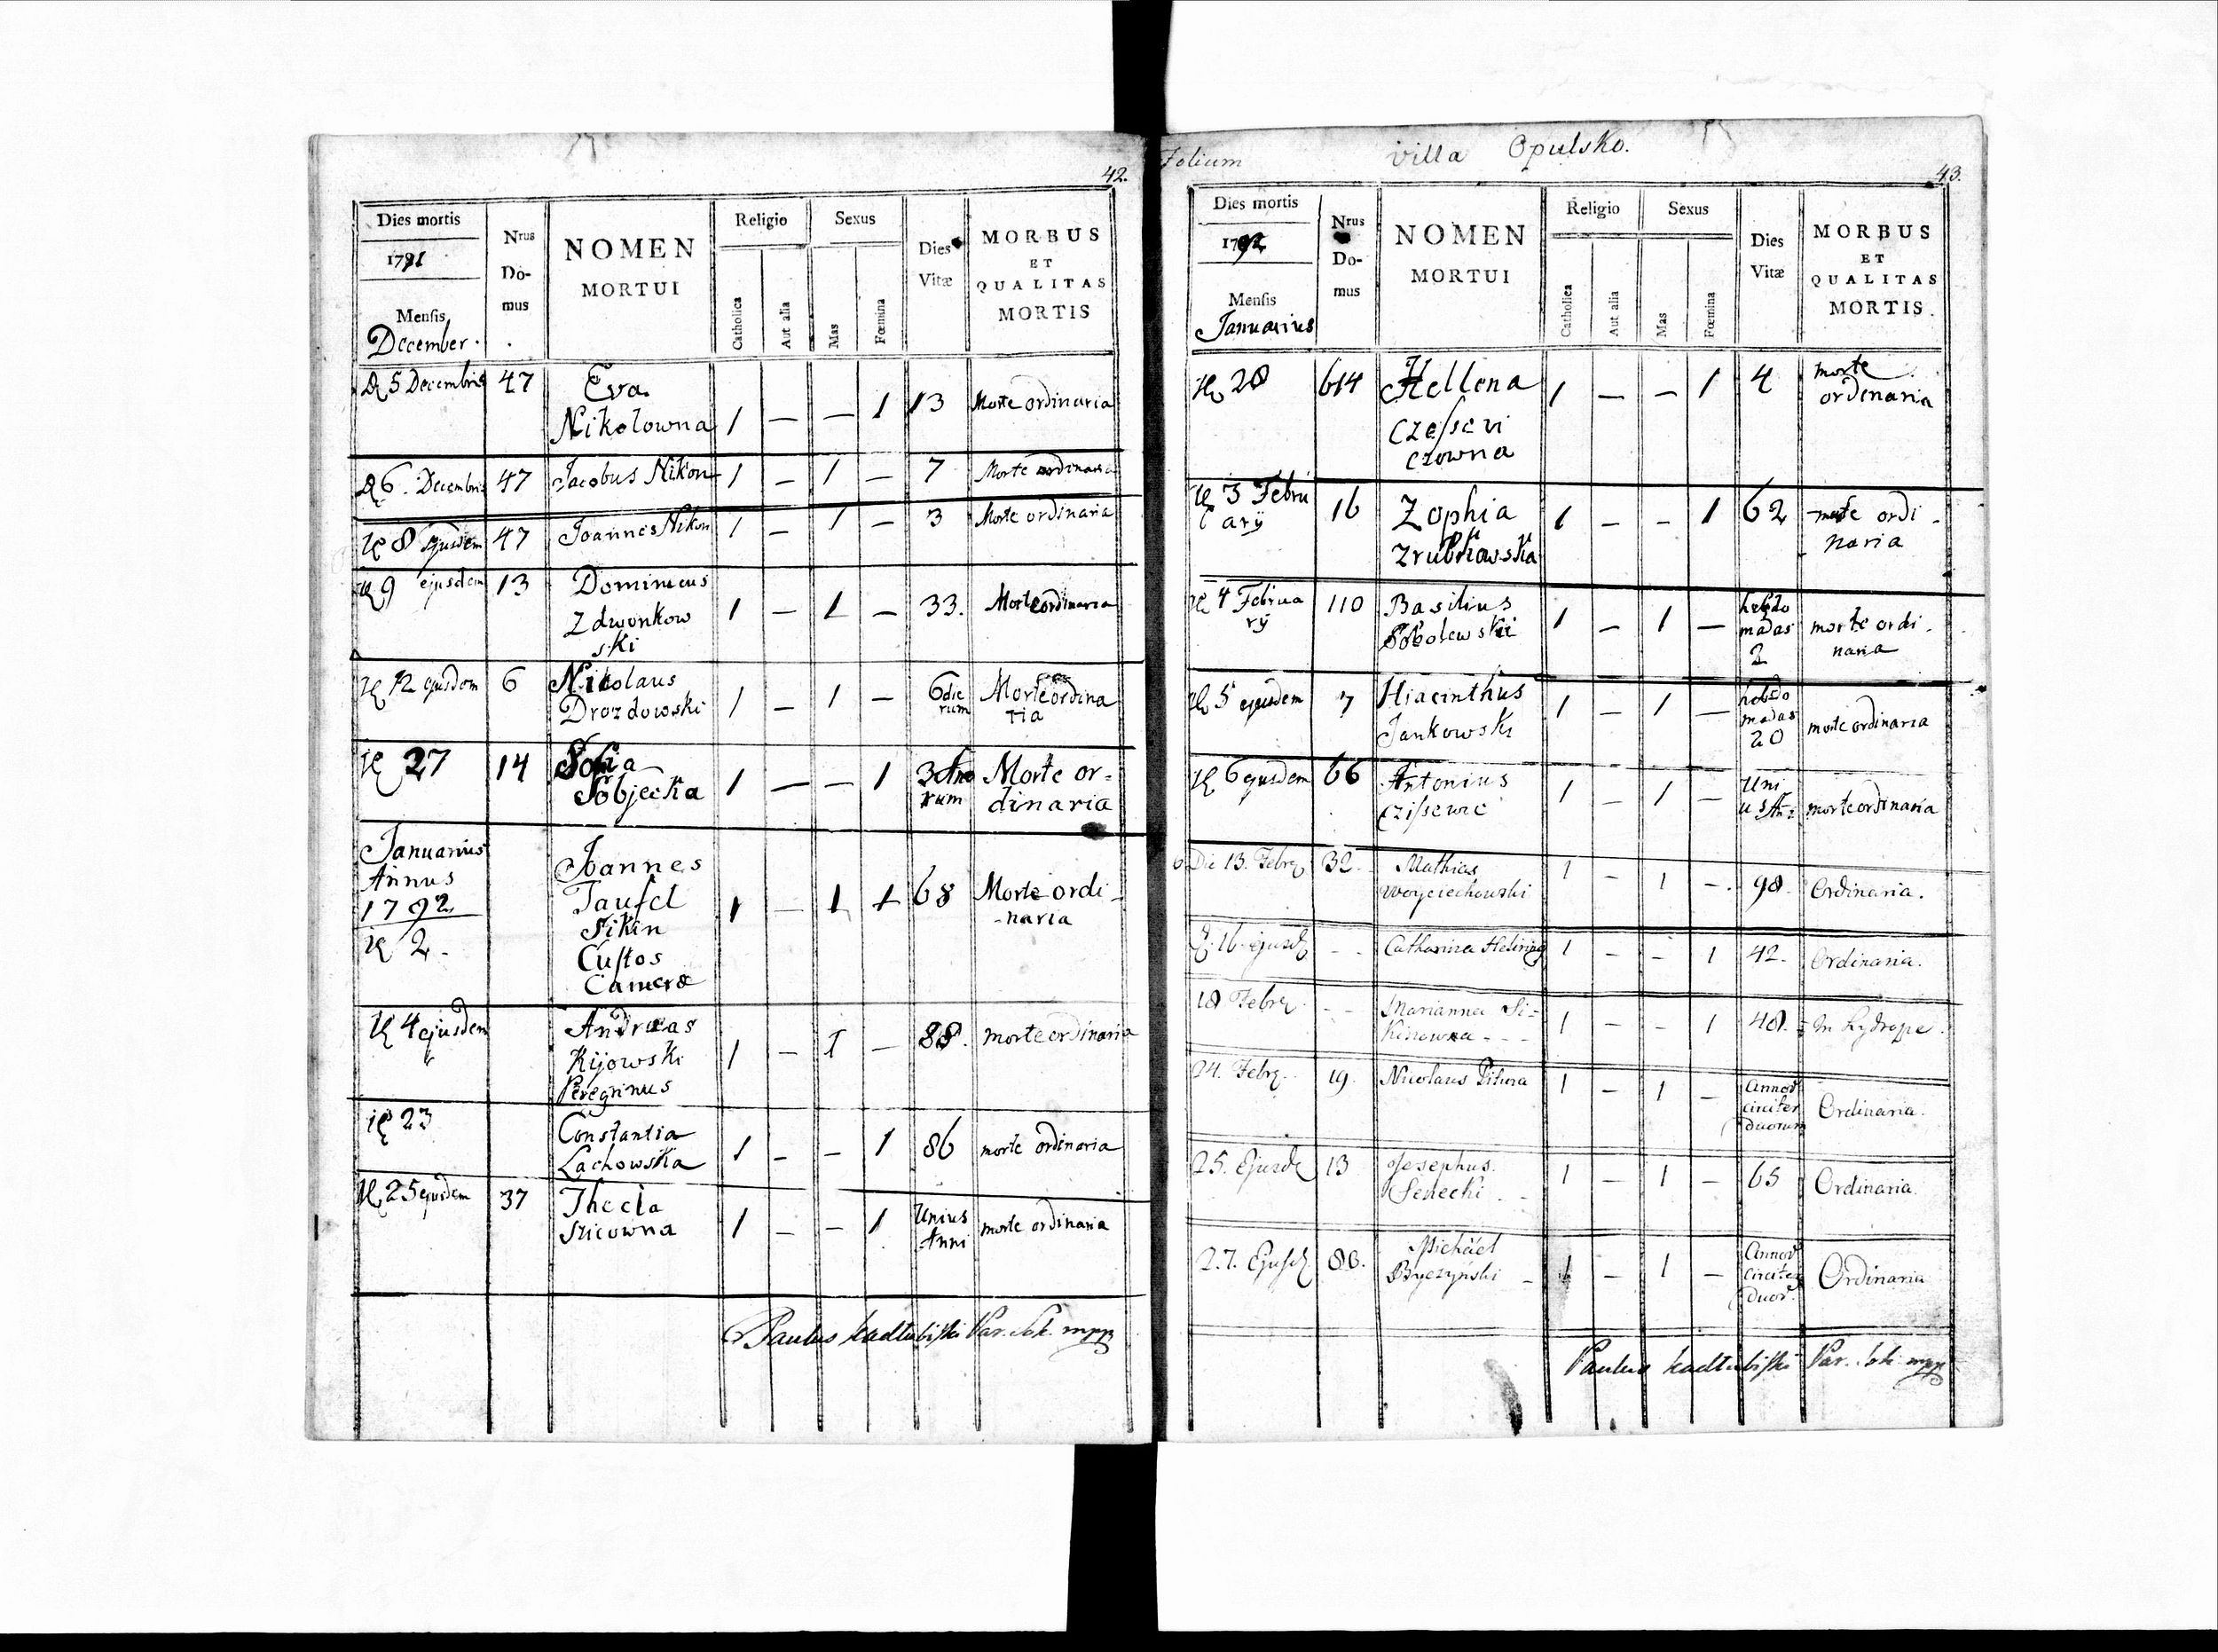 42.
Dies mortis
1791
Mensis
December.
Nrus
Do-
mus
NOMEN
MORTUI
Religio
Catholica
Aut alia
Sexus
Mas
Fœmina
Dies
Vitæ
MORBUS
ET
QUALITAS
MORTIS
5 Decembris 47 Eva
Nikolowna 1 — — 1 13 Morte ordinaria
6. Decembris 47 Jacobus Nikon 1 — 1 — 7 Morte ordinaria
8 ejusdem 47 Joannes Nikon 1 — 1 — 3 Morte ordinaria
9 ejusdem 13 Dominicus
Zdwonkow
ski 1 — 1 — 33. Morte ordinaria
12 ejusdem 6 Nikolaus
Drozdowski 1 — 1 — 6 die
rum Morte ordina
ria
27 14 Sofia
Sobjecka 1 — — 1 3 Ano
rum Morte or-
dinaria
Januarius
Annus
1792
2.
Joannes
Taufel
Sikin
Custos
Cameræ 1 — 1 1 68 Morte ordi-
-naria
4 ejusdem Andreas
Kijowski
Peregrinus 1 — 1 — 88. morte ordinaria
23 Constantia
Lachowska 1 — — 1 86 morte ordinaria
25 ejusdem 37 Thecla
Szicowna 1 — — 1 Unius
Anni morte ordinaria
Paulus kadlubiski Par. mpp
Folium villa Opulsko.
43.
Dies mortis
1792
Mensis
Januarius
Nrus
Do-
mus
NOMEN
MORTUI
Religio
Catholica
Aut alia
Sexus
Mas
Fœmina
Dies
Vitæ
MORBUS
ET
QUALITAS
MORTIS.
28 614 Hellena
Czessevi
czowna 1 — — 1 4 morte
ordenaria
3 Febru
arÿ 16 Zophia
Zrubkowska 1 — — 1 62 morte ordi-
naria
4 Februa
rÿ 110 Basilius
Sobolewski 1 — 1 — hebdo
madas
2 morte ordi-
naria
5 ejusdem 7 Hiacinthus
Jankowski 1 — 1 — hebdo
madas
20 morte ordinaria
6 ejusdem 66 Antonius
Czissewic 1 — 1 — Uni
us An: morte ordinaria
Die 13. Febr 32. Mathias
Woyciechowski 1 — 1 —. 98. Ordinaria.
16. ejusd - - Catharina Helwing 1 — — 1 42. Ordinaria.
18 Febr. - - Marianna Si-
Kinowna - - 1 — — 1 48. In hydrope.
24. Febr. 19. Nicolaus Pitura 1 — 1 — Annor
circiter
duorum Ordinaria.
25. Ejusd 13 Josephus.
Senecki. - 1 — 1 — 65 Ordinaria.
27. Ejusd 86. Michael
Byczyński - 1 — 1 — Annor
circiter
duor. Ordinaria
Paulus kadlubiski Par. mpp